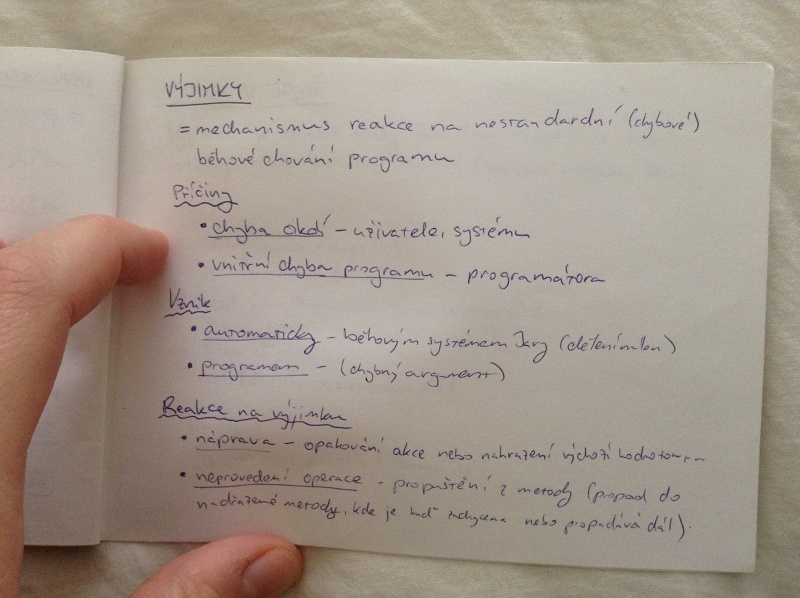 VÝJIMKY
= mechanismus reakce na nestandardní (chybové)
běhové chování programu
Příčiny
• chyba okolí – uživatele, systému
• vnitřní chyba programu – programátora
Vznik
• automaticky – běhovým systémem Javy (dělení nulou)
• programem – (chybný argument)
Reakce na výjimku
• náprava – opakování akce nebo nahrazení výchozí hodnotou, –
• neprovedení operace – propuštění z metody (propad do
nadřazené metody, kde je buď zachycena nebo propadává dál).